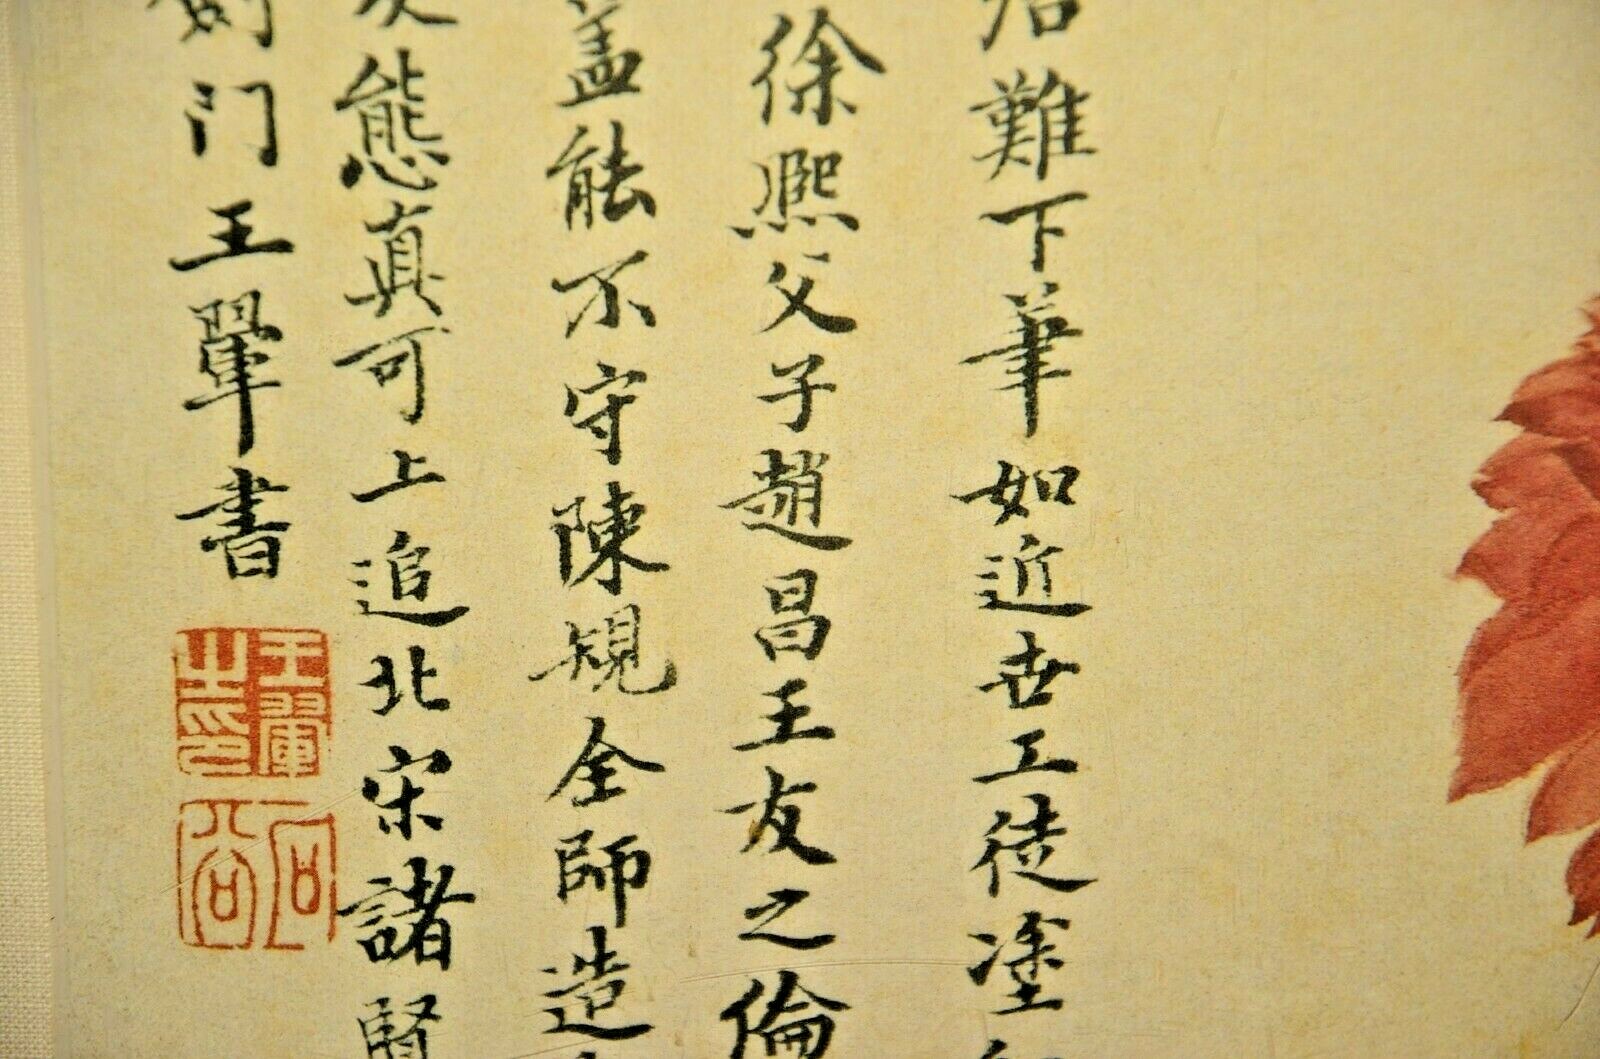 難下筆如近世工徒塗
徐熙父子趙昌王友之倫
盖能不守陳規全師造
態真可上追北宋諸賢
門王翬書
王翬之印
石谷